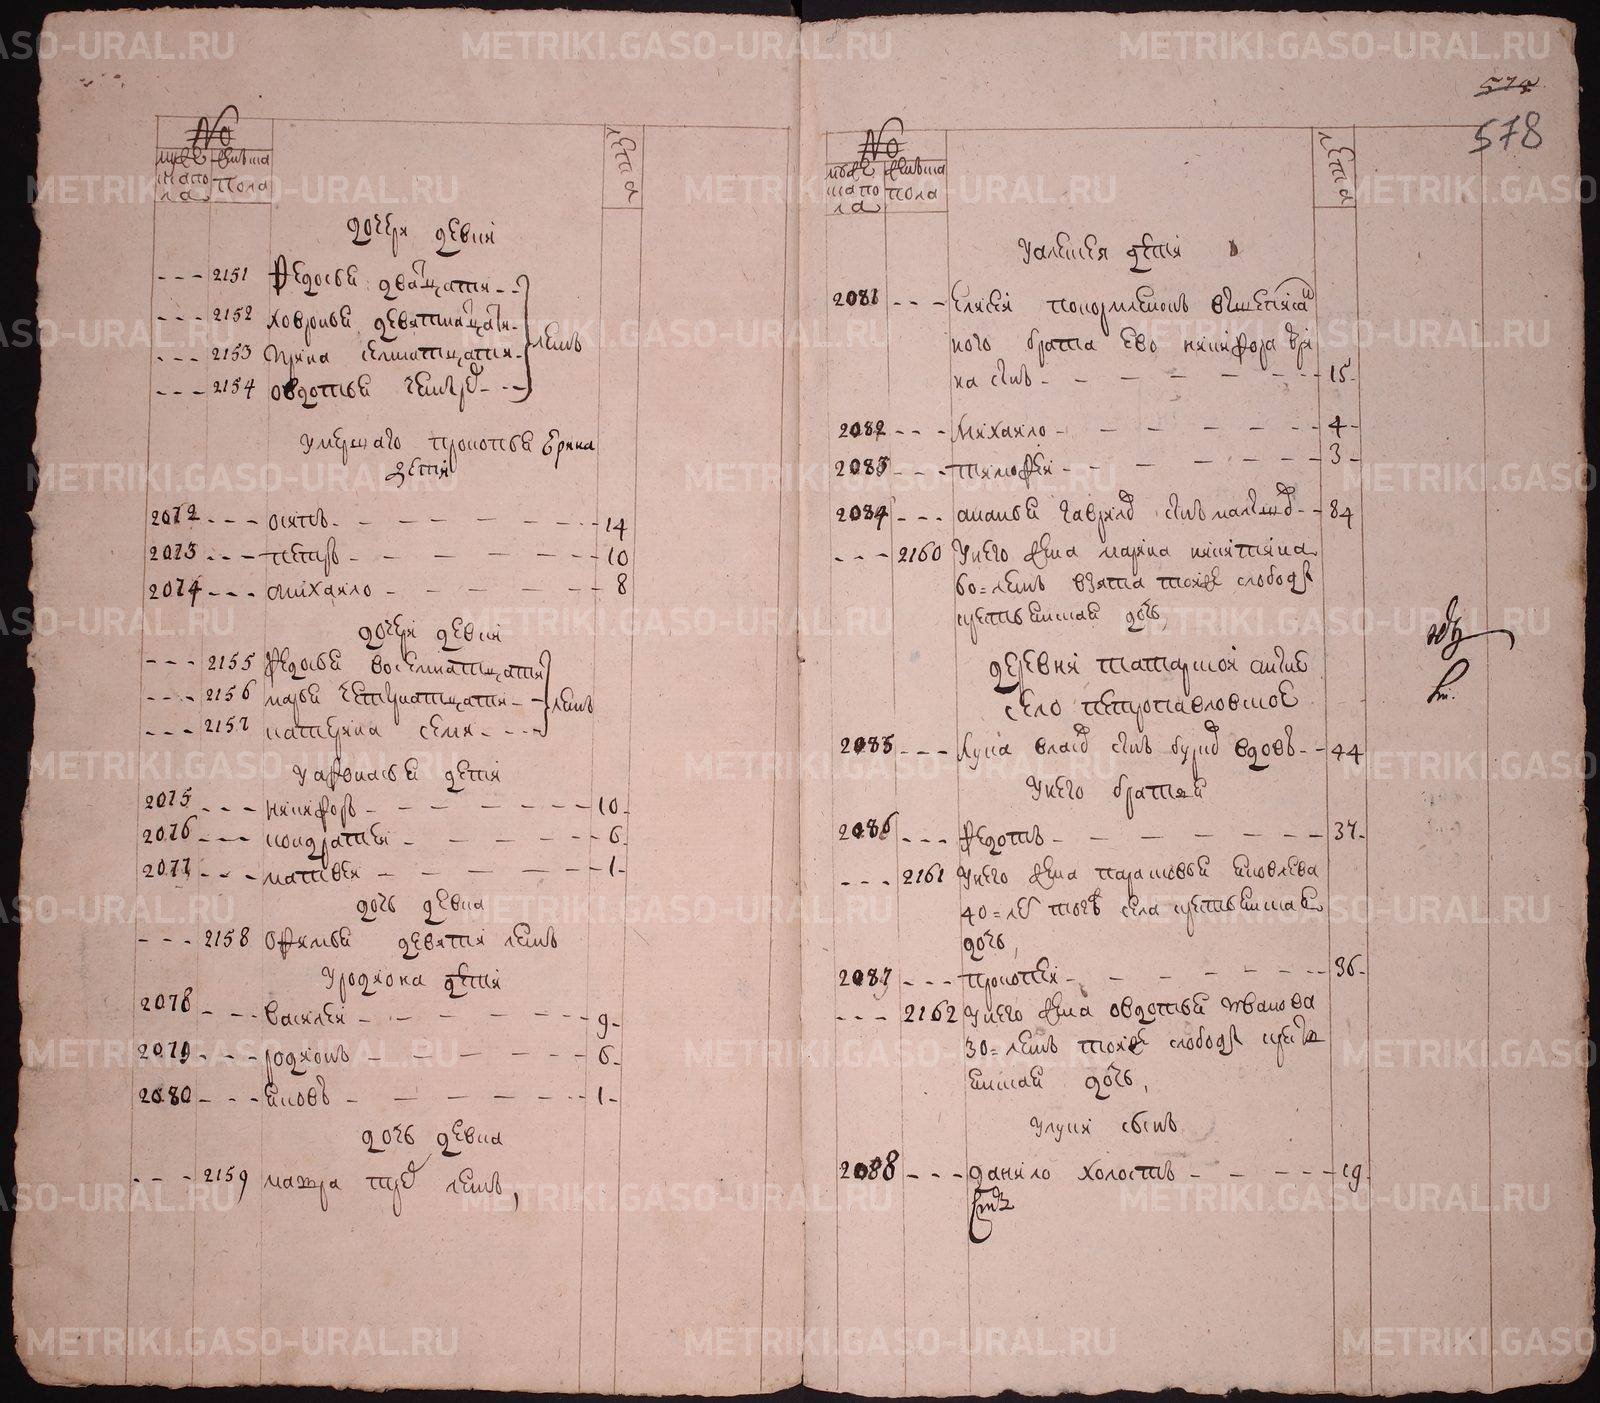 №
муже
ска по
ла
женска
пола
лета
дочери девки
2151 Федосья дватцати
2152 Ховронья девятнатцати
2153 Ирина семнатцати
2154 овдотья четырех
летъ
умершаго прокопья
дети
2072 осипъ 14
2073 петръ 10
2074 михаило 8
дочери девки
2155 федосья восемнатцати
2156 марья
2157 катерина семи
летъ
у афонасья дети
2075 никифоръ 10
2076 кондратеи 6
2077 матвеи 1
дочь девка
2158 офимья девяти летъ
у родиона дети
2078 василеи 9
2079 родионъ 6
2080 яковъ 1
дочь девка
2159 марѳа трех летъ
578
№
муже
ска по
ла
женска
пола
лета
у алексея дети
2081 елисеи покормленокъ
ного брата ево никифора
сынъ 15
2082 михаило 4
2083 тимофеи 3
2084 ананья гаврилов сынъ 84
2160 у него жена марина никитина
60 летъ взята тоеже слободы
крестьянская дочь
деревни татарской
село петропавловское
2085 лука власов сынъ вдовъ 44
у него братья
2086 федотъ 37
2161 у него жена парасковья яковлева
40 ле тогож села крестьянская
дочь
2087 прокопеи 36
2162 у него жена овдотья иванова
30 летъ тоеже слободы кресть
янская дочь
у луки сынъ
2088 данило холостъ 19